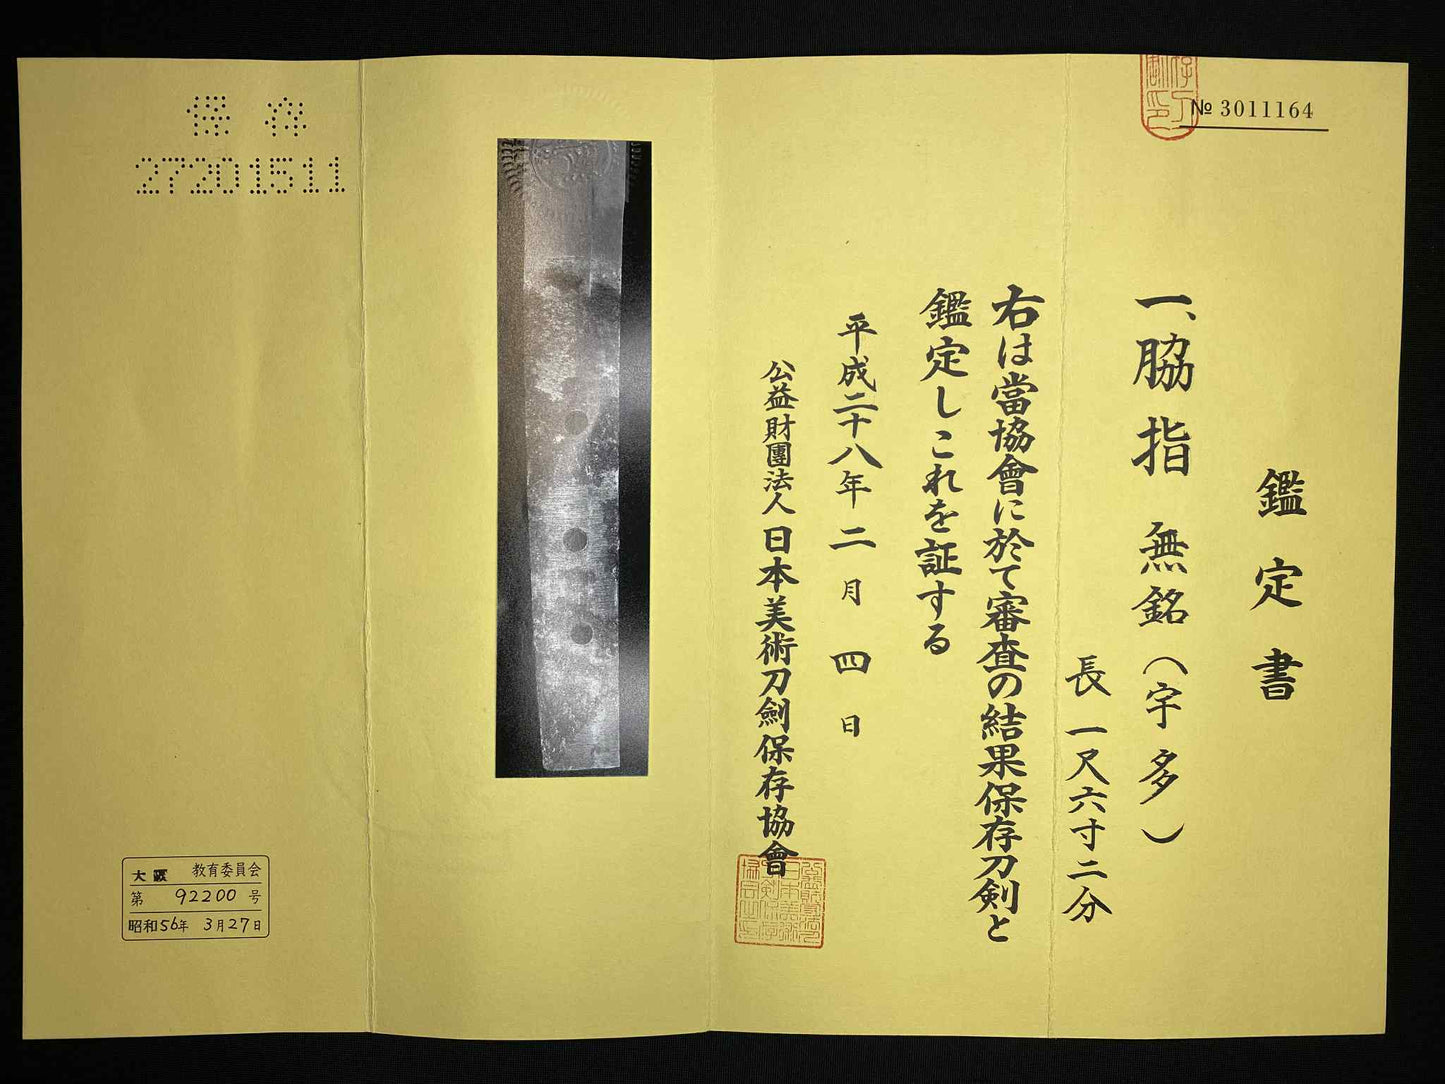 № 3011164
鑑定書
一、脇指 無銘（宇多）
長 一尺六寸二分
右は當協會に於て審査の結果保存刀剣と
鑑定しこれを証する
平成二十八年二月四日
公益財團法人 日本美術刀劍保存協會
保存
27201511
大阪 教育委員会
第 92200 号
昭和56年 3月27日